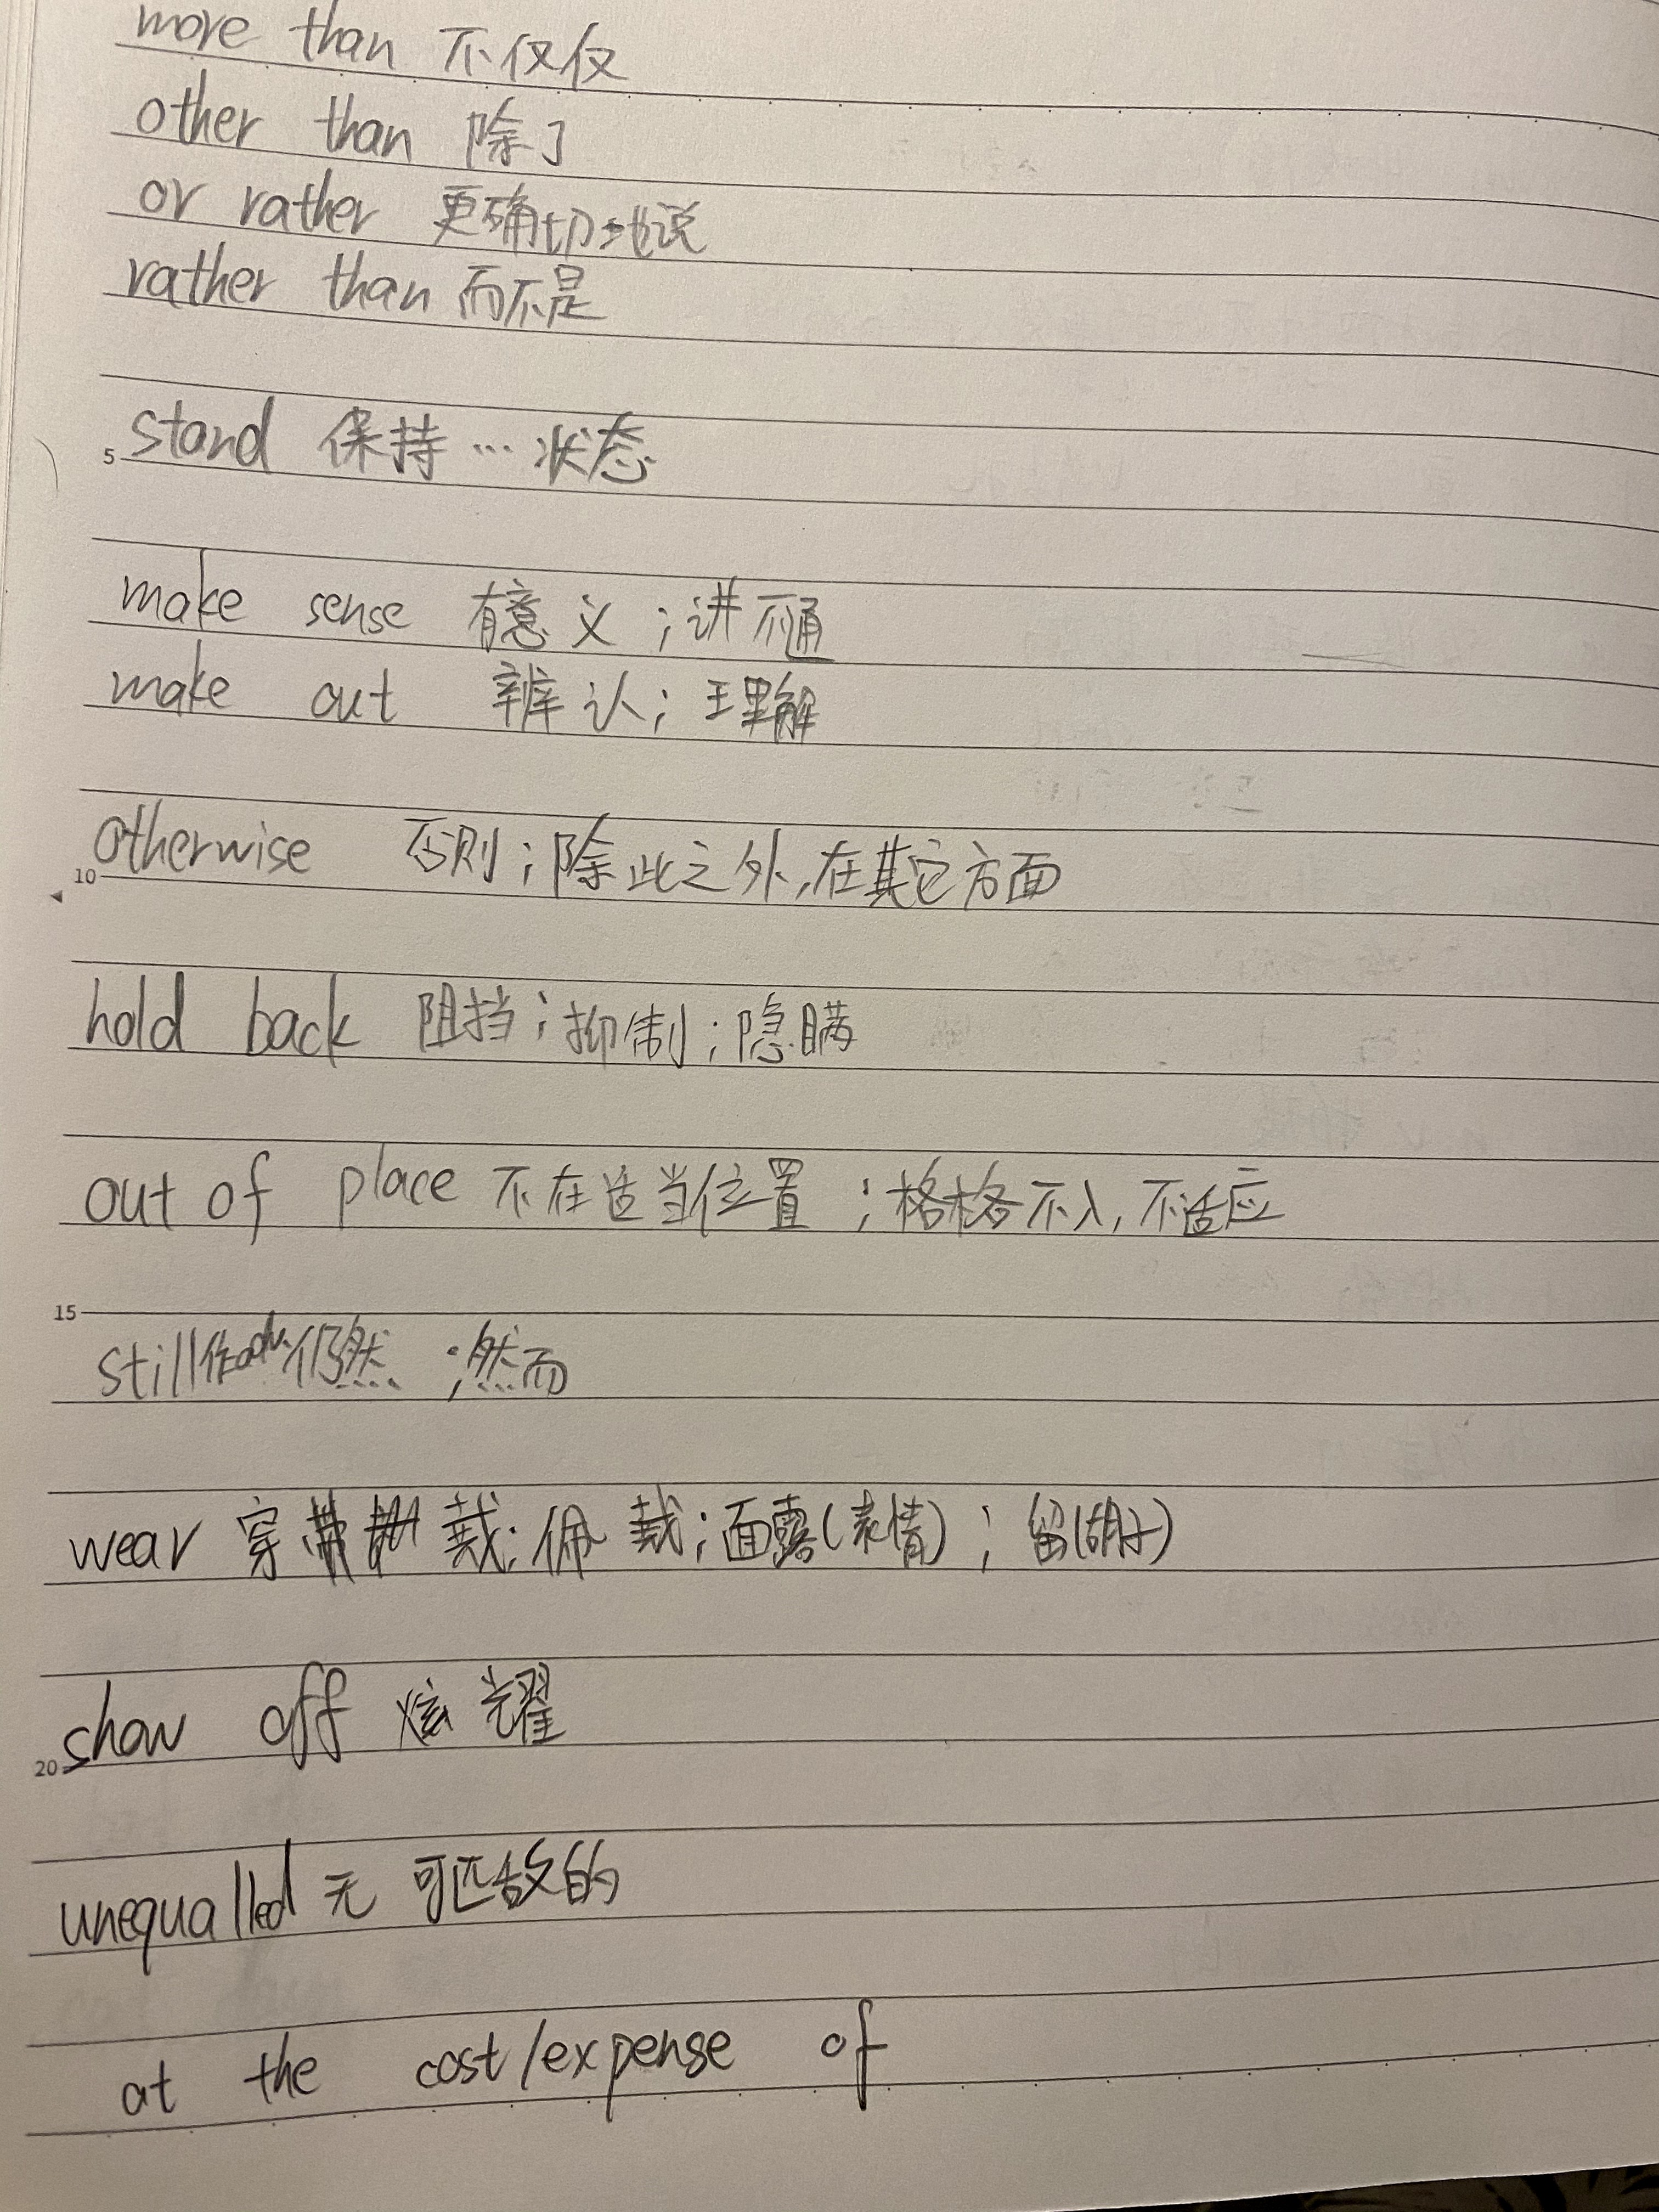 more than 不仅仅
other than 除了
or rather 更确切地说
rather than 而不是
5 Stand 保持…状态
make sense 有意义；讲不通
make out 辩认；理解
10 otherwise 否则；除此之外，在其它方面
hold back 阻挡；抑制；隐瞒
out of place 不在适当位置；格格不入，不适应
15
still 仍然；然而
wear 穿着 裁；佩裁；面露(表情)；留(胡
20 show off 炫耀
unequalled 无可匹敌的
at the cost/expense of